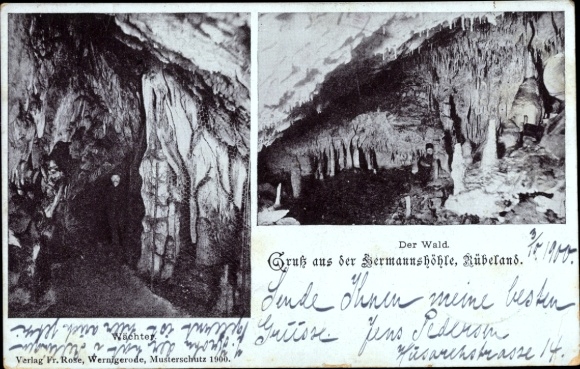 Der Wald.
Gruß aus der Hermannshöhle, Rübeland.
1900.
Sende Ihnen meine besten
Grüsse Jens Pedersen
Husarenstrasse 14.
Wächter.
Verlag Fr. Rose, Wernigerode, Musterschutz 1900.